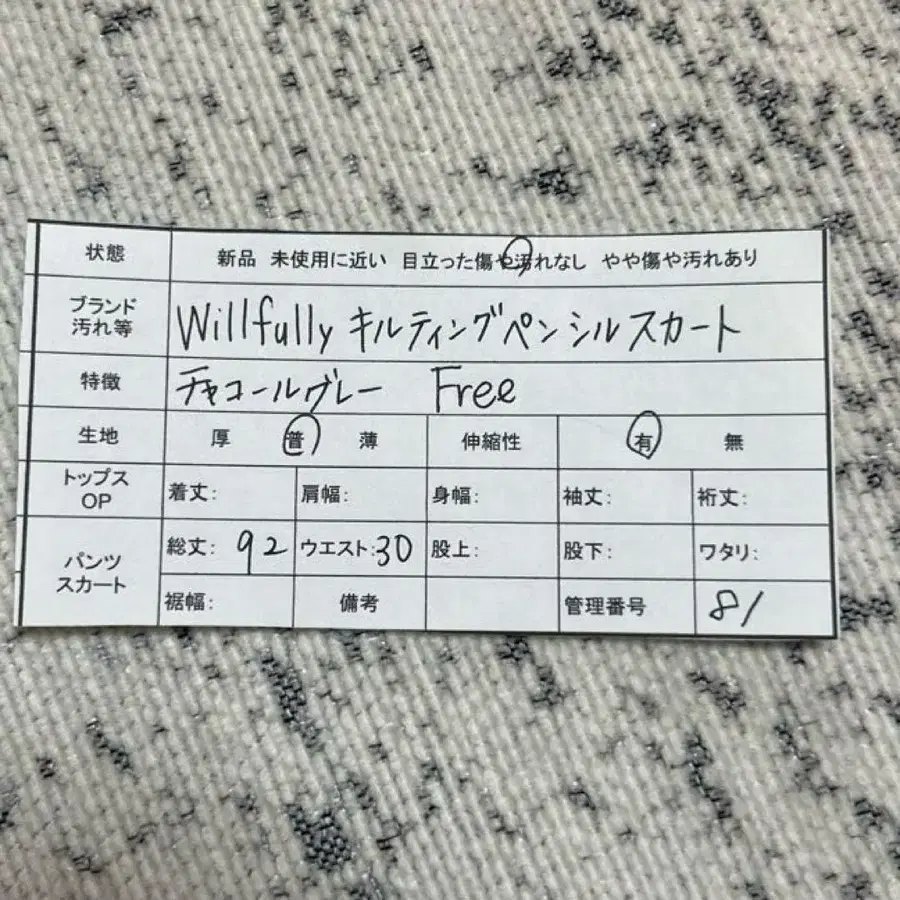 状態 新品 未使用に近い 目立った傷や汚れなし やや傷や汚れあり
ブランド
汚れ等
Willfully キルティングペンシルスカート
特徴 チャコールグレー Free
生地 厚 普 薄 伸縮性 有 無
トップス
OP
着丈: 肩幅: 身幅: 袖丈: 裄丈:
パンツ
スカート
総丈: 92 ウエスト:30 股上: 股下: ワタリ:
裾幅: 備考 管理番号 81